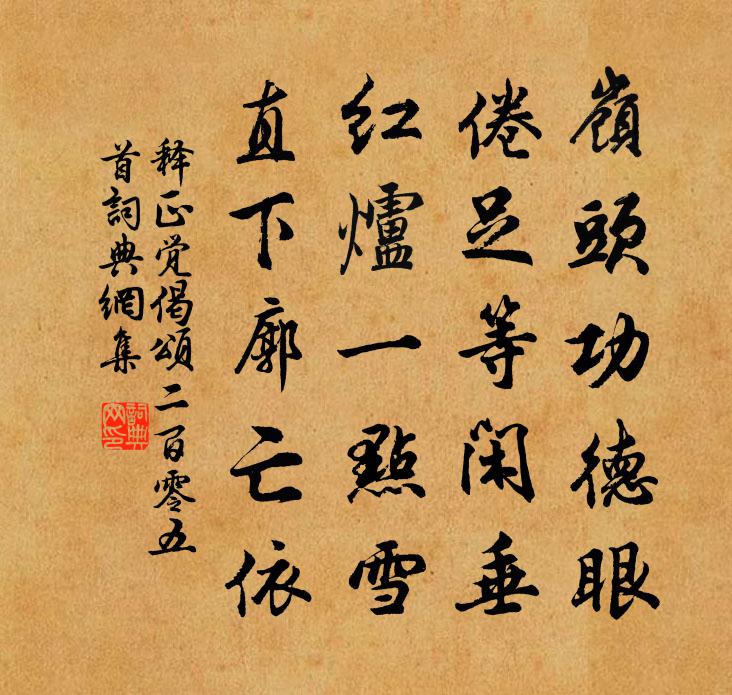 嶺頭功德眼
倦足等閑垂
紅爐一點雪
直下廓亡依
释正觉偈頌二百零五
首詞典網集
詞典
网印